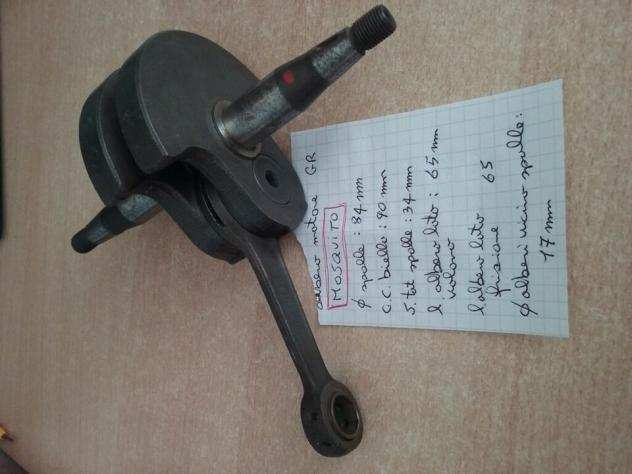 albero motore GR
MOSQUITO
φ spalle : 84 mm
c.c. biella : 90 mm
S. tot spalle : 34 mm
l albero lato : 65 mm
volano
l albero lato 65
frizione
φ alberi vicino spalle :
17 mm